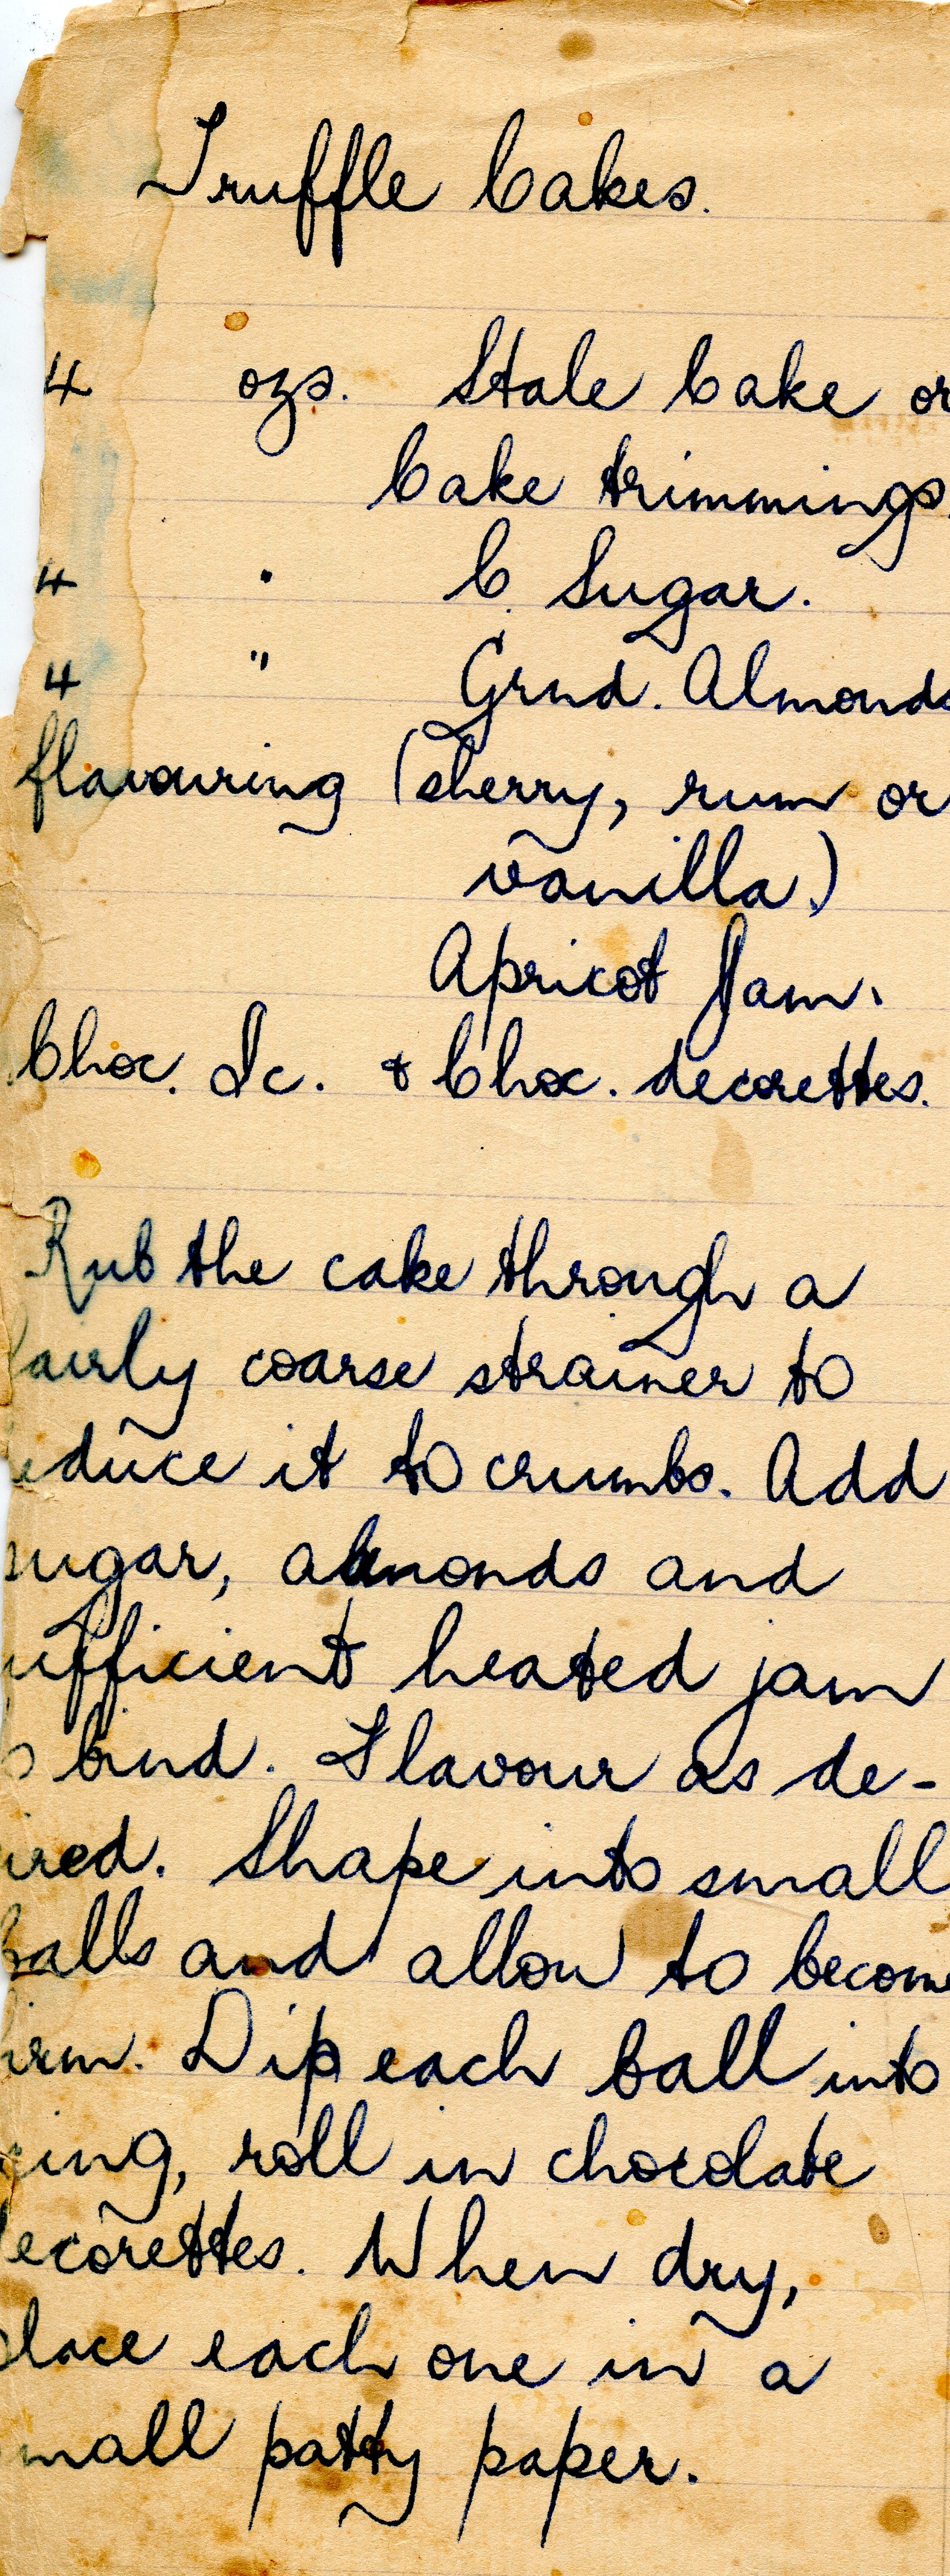 Truffle Cakes.
4 ozs. Stale Cake or
Cake trimmings.
4 " C. Sugar.
4 " Grnd. Almonds
flavouring (sherry, rum or
vanilla.)
Apricot Jam.
Choc. Ic. & Choc. decorettes.
Rub the cake through a
fairly coarse strainer to
educe it to crumbs. Add
sugar, almonds and
ufficient heated jam
o bind. Flavour as de-
ired. Shape into small
balls and allow to become
firm. Dip each ball into
cing, roll in chocolate
decorettes. When dry,
place each one in a
mall patty paper.